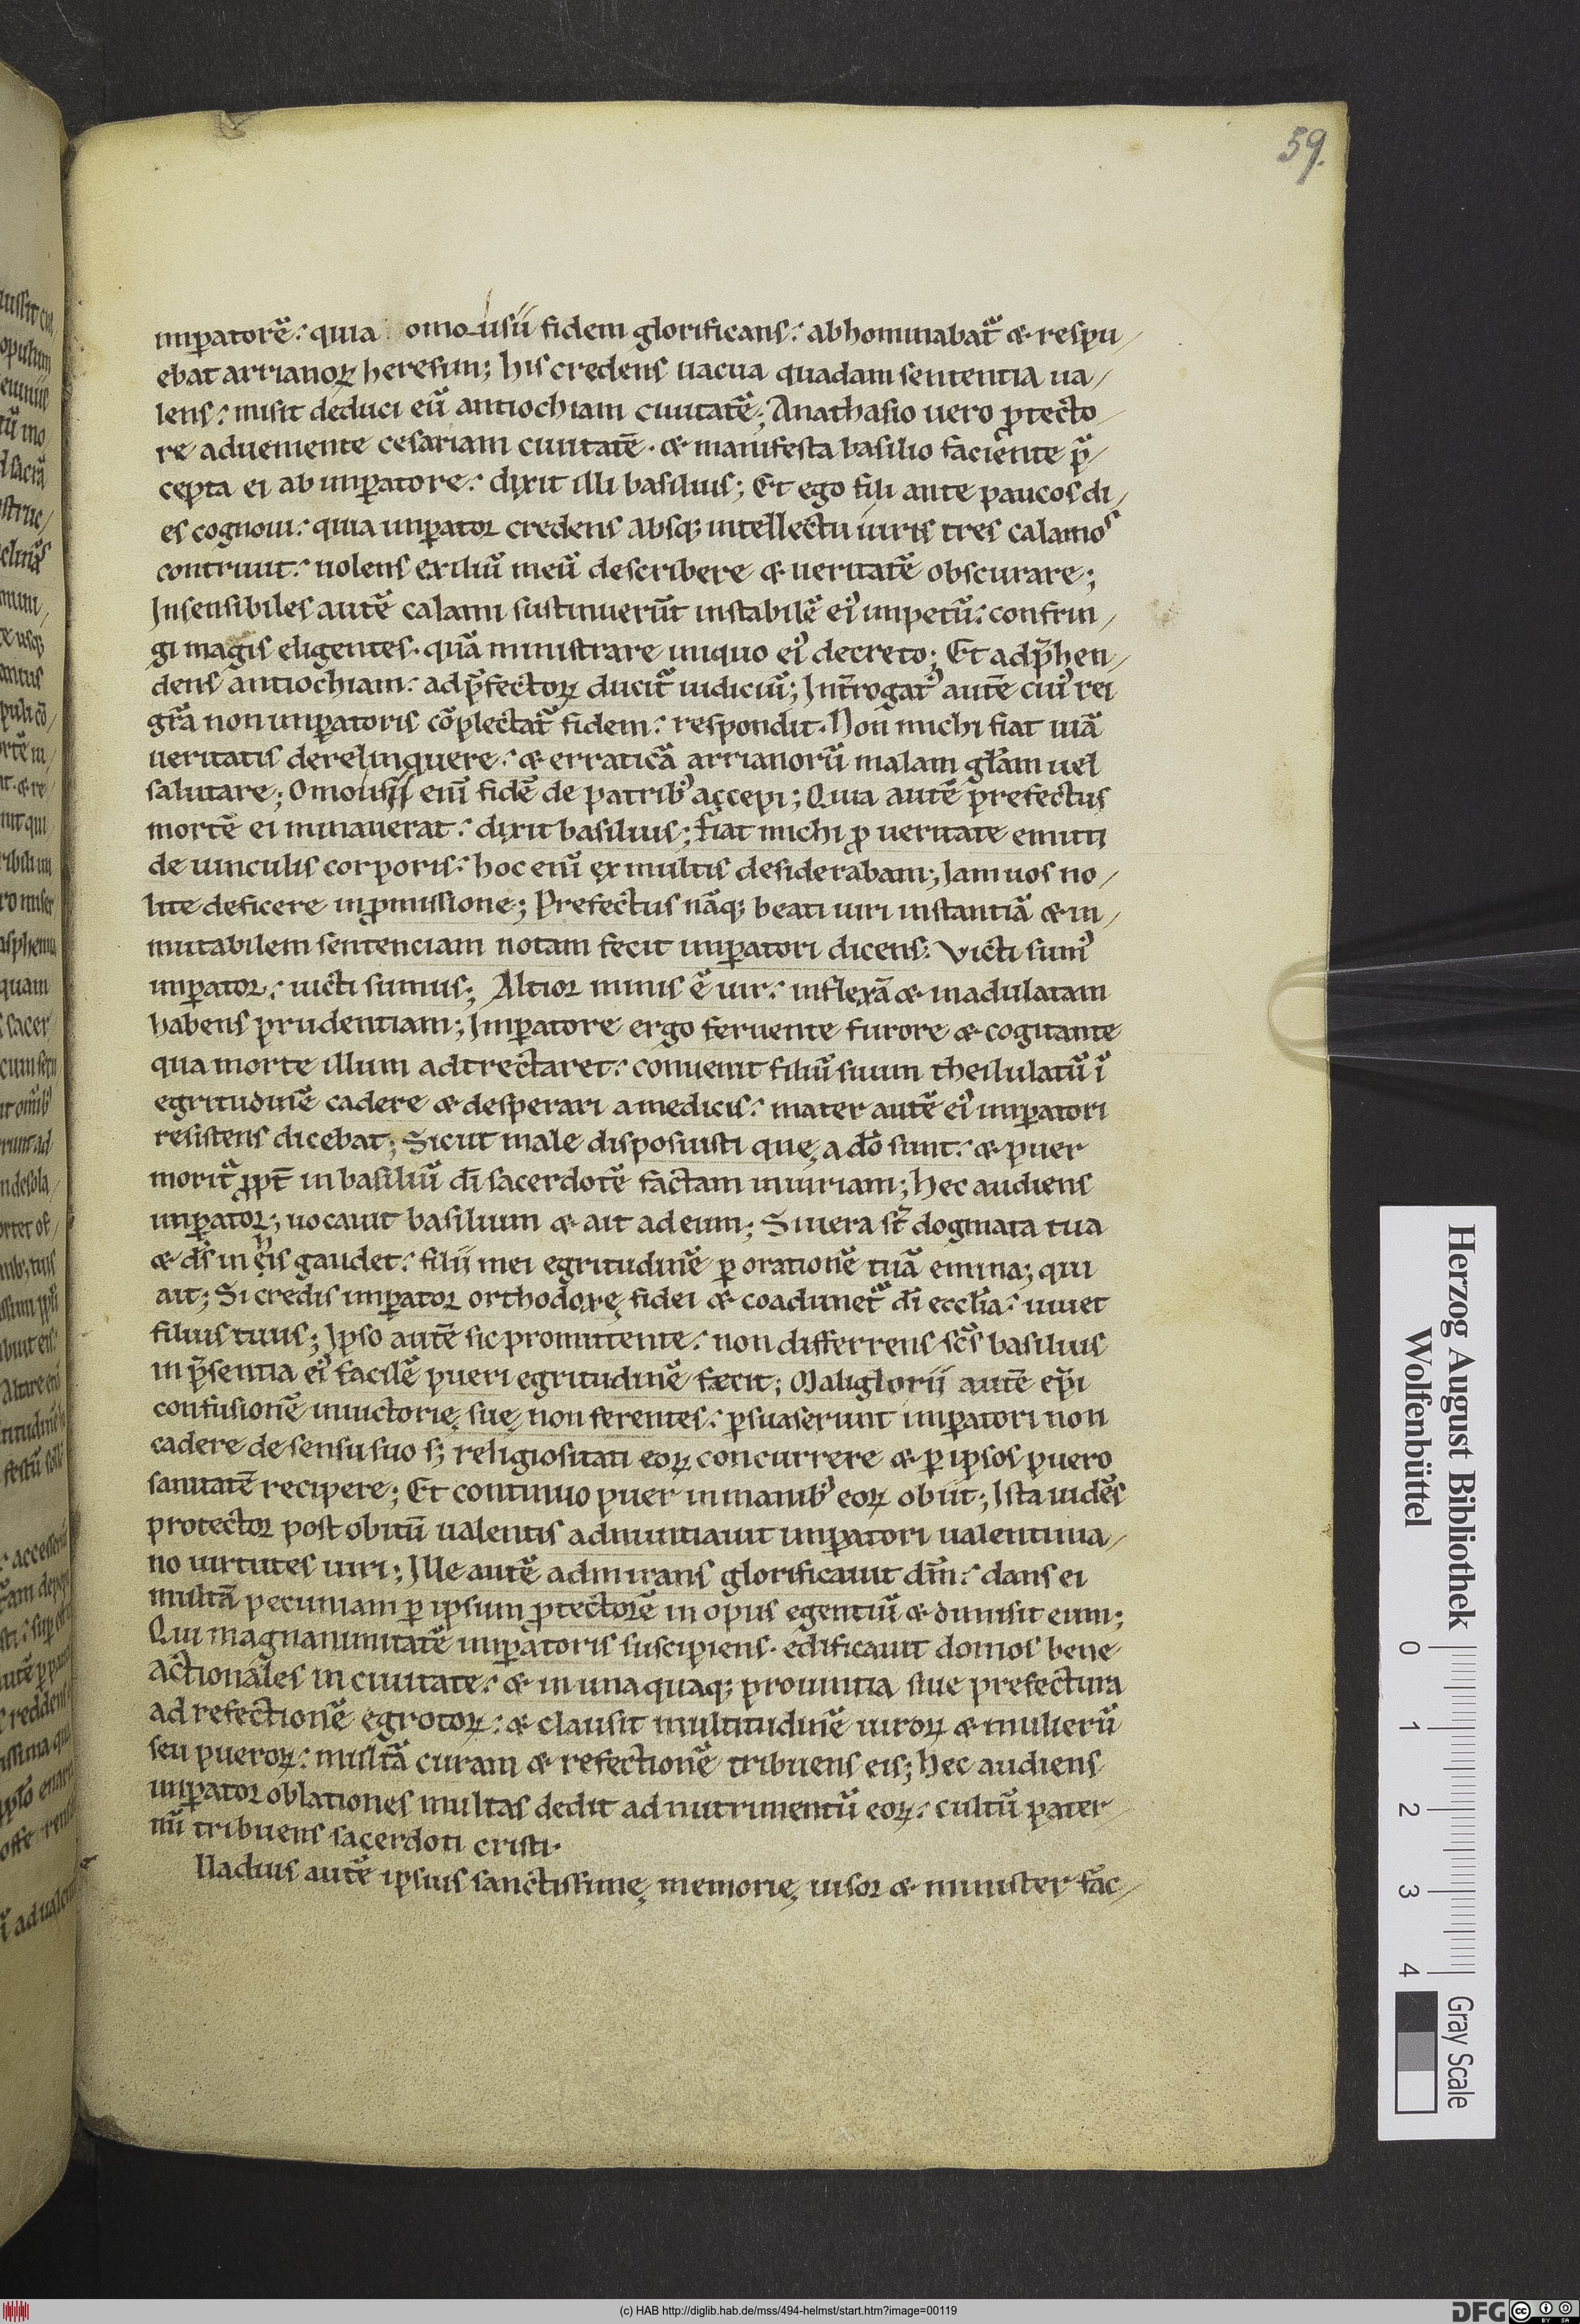 59.
imꝑatorē: quia omo usii fidem glorificans: abhominabat᷑ & respu
ebat arrianoꝝ heresim; his credens uacua quadam sententia ua
lens: misit deduci eū antiochiam ciuitatē; Anathasio uero ꝓtecto
re adueniente cesariam ciuitatē. & manifesta basilio faciente p̄
cepta ei ab imꝑatore: dixit illi basilius; Et ego fili ante paucos di
es cognoui: quia imꝑator credens absq; intellectu iuris tres calamos
contriuit: uolens exiliū meū describere & ueritatē obscurare;
Insensibiles autē calami sustinuerūt instabilē ei᷒ impetū: confrin
gi magis eligentes. quā ministrare iniquo ei᷒ decreto; Et adp̄hen
dens antiochiam: ad p̄fectoꝝ ducit᷑ iudiciū; Int̄rogat᷒ autē cui᷒ rei
gr̄a non imꝑatoris cōplectat᷑ fidem: respondit. Non michi fiat uiā
ueritatis derelinquere: & erraticā arrianorū malam gl̄am uel
salutare; Omousii enī fidē de patrib᷒ accepi; Quia autē prefectus
mortē ei minauerat: dixit basilius; fiat michi ꝓ ueritate emitti
de uinculis corporis: hoc enī ex multis desiderabam; Iam uos no
lite deficere in ꝓmissione; Prefectus nāq; beati uiri instantiā & in
mutabilem sentenciam notam fecit imꝑatori dicens: Victi sum᷒
imꝑator: uicti sumus; Altior minis ē uir: inflexā & inadulatam
habens prudentiam; Imꝑatore ergo feruente furore & cogitante
qua morte illum adtrectaret: conuenit filiū suum thesilulatū ī
egritudinē cadere & desperari a medicis: mater autē ei᷒ imꝑatori
resistens dicebat; Sicut male disposuisti quę a dō sunt: & puer
morit᷑ ꝓpt̄ in basiliū dī sacerdotē factam iniuriam; Hec audiens
imꝑator; uocauit basilium & ait ad eum; Si uera st̄ dogmata tua
& ds̄ in eis gaudet: filii mei egritudinē ꝑ orationē tuā emina; qui
ait; Si credis imꝑator orthodoxę fidei & coadunet᷑ dī eccl̄ia: uiuet
filius tuus; Ipso autē sic promittente: non differrens sc̄s basilius
in p̄sentia ei᷒ facilē pueri egritudinē fecit; Maliglorii autē ep̄i
confusionē inuictorię suę non ferentes: ꝑsuaserunt imꝑatori non
cadere de sensu suo s; religiositati eoꝝ concurrere & ꝑ ipsos puero
sanitatē recipere; Et continuo puer in manib᷒ eoꝝ obiit; Ista uidēs
protector post obitū ualentis adnuntiauit imꝑatori ualentinia
no uirtutes uiri; Ille autē admirans glorificauit dm̄: dans ei
multā pecuniam ꝑ ipsum ꝓtectorē in opus egentiū & dimisit eum;
Qui magnanimitatē imꝑatoris suscipiens. edificauit domos bene
actionales in ciuitate: & in unaquaq; prouintia siue prefectura
ad refectionē egrotoꝝ: & clausit multitudinē uiroꝝ & mulierū
seu pueroꝝ: multā curam & refectionē tribuens eis; Hec audiens
imꝑator oblationes multas dedit ad nutrimentū eoꝝ: cultū pater
nū tribuens sacerdoti cristi.
Uladius autē ipsius sanctissimę memorię uisor & minister fac
Herzog August Bibliothek
Wolfenbüttel
0 1 2 3 4
Gray Scale
(c) HAB http://diglib.hab.de/mss/494-helmst/start.htm?image=00119
DFG